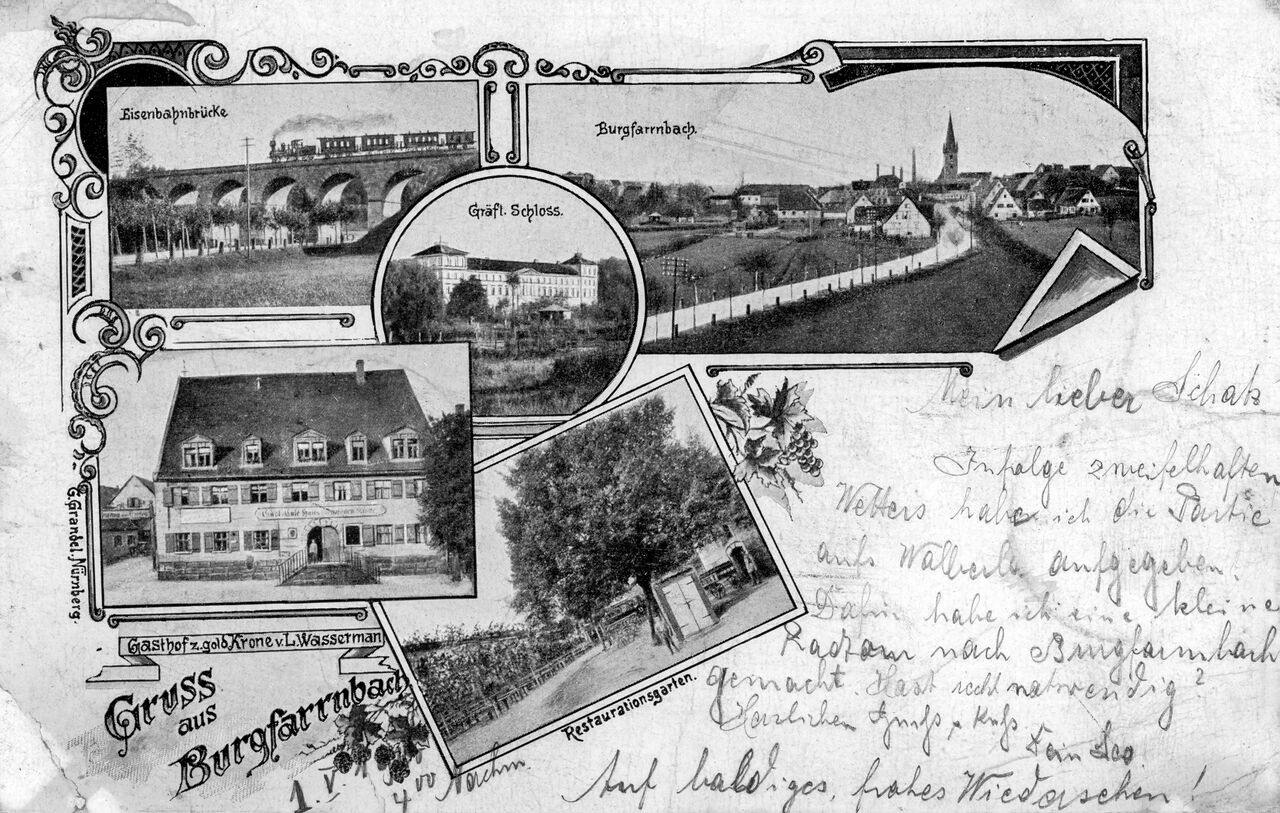 Eisenbahnbrücke
Burgfarrnbach.
Gräfl. Schloss.
G. Grandel. Nürnberg.
Gasthof z. gold. Krone v. L. Wasserman
Gruss
aus
Burgfarrnbach
Restaurationsgarten.
Mein lieber Schatz
Infolge zweifelhaften
Wetters habe ich die Partie
aufs Walberla aufgegeben.
Dafür habe ich eine kleine
Radtour nach Burgfarrnbach
gemacht. Hast recht notwendig?
Herzlichen Gruß u. Kuß
Dein Leo
1. V. 4 00 Nachm.
Auf baldiges, frohes Wiedersehen!